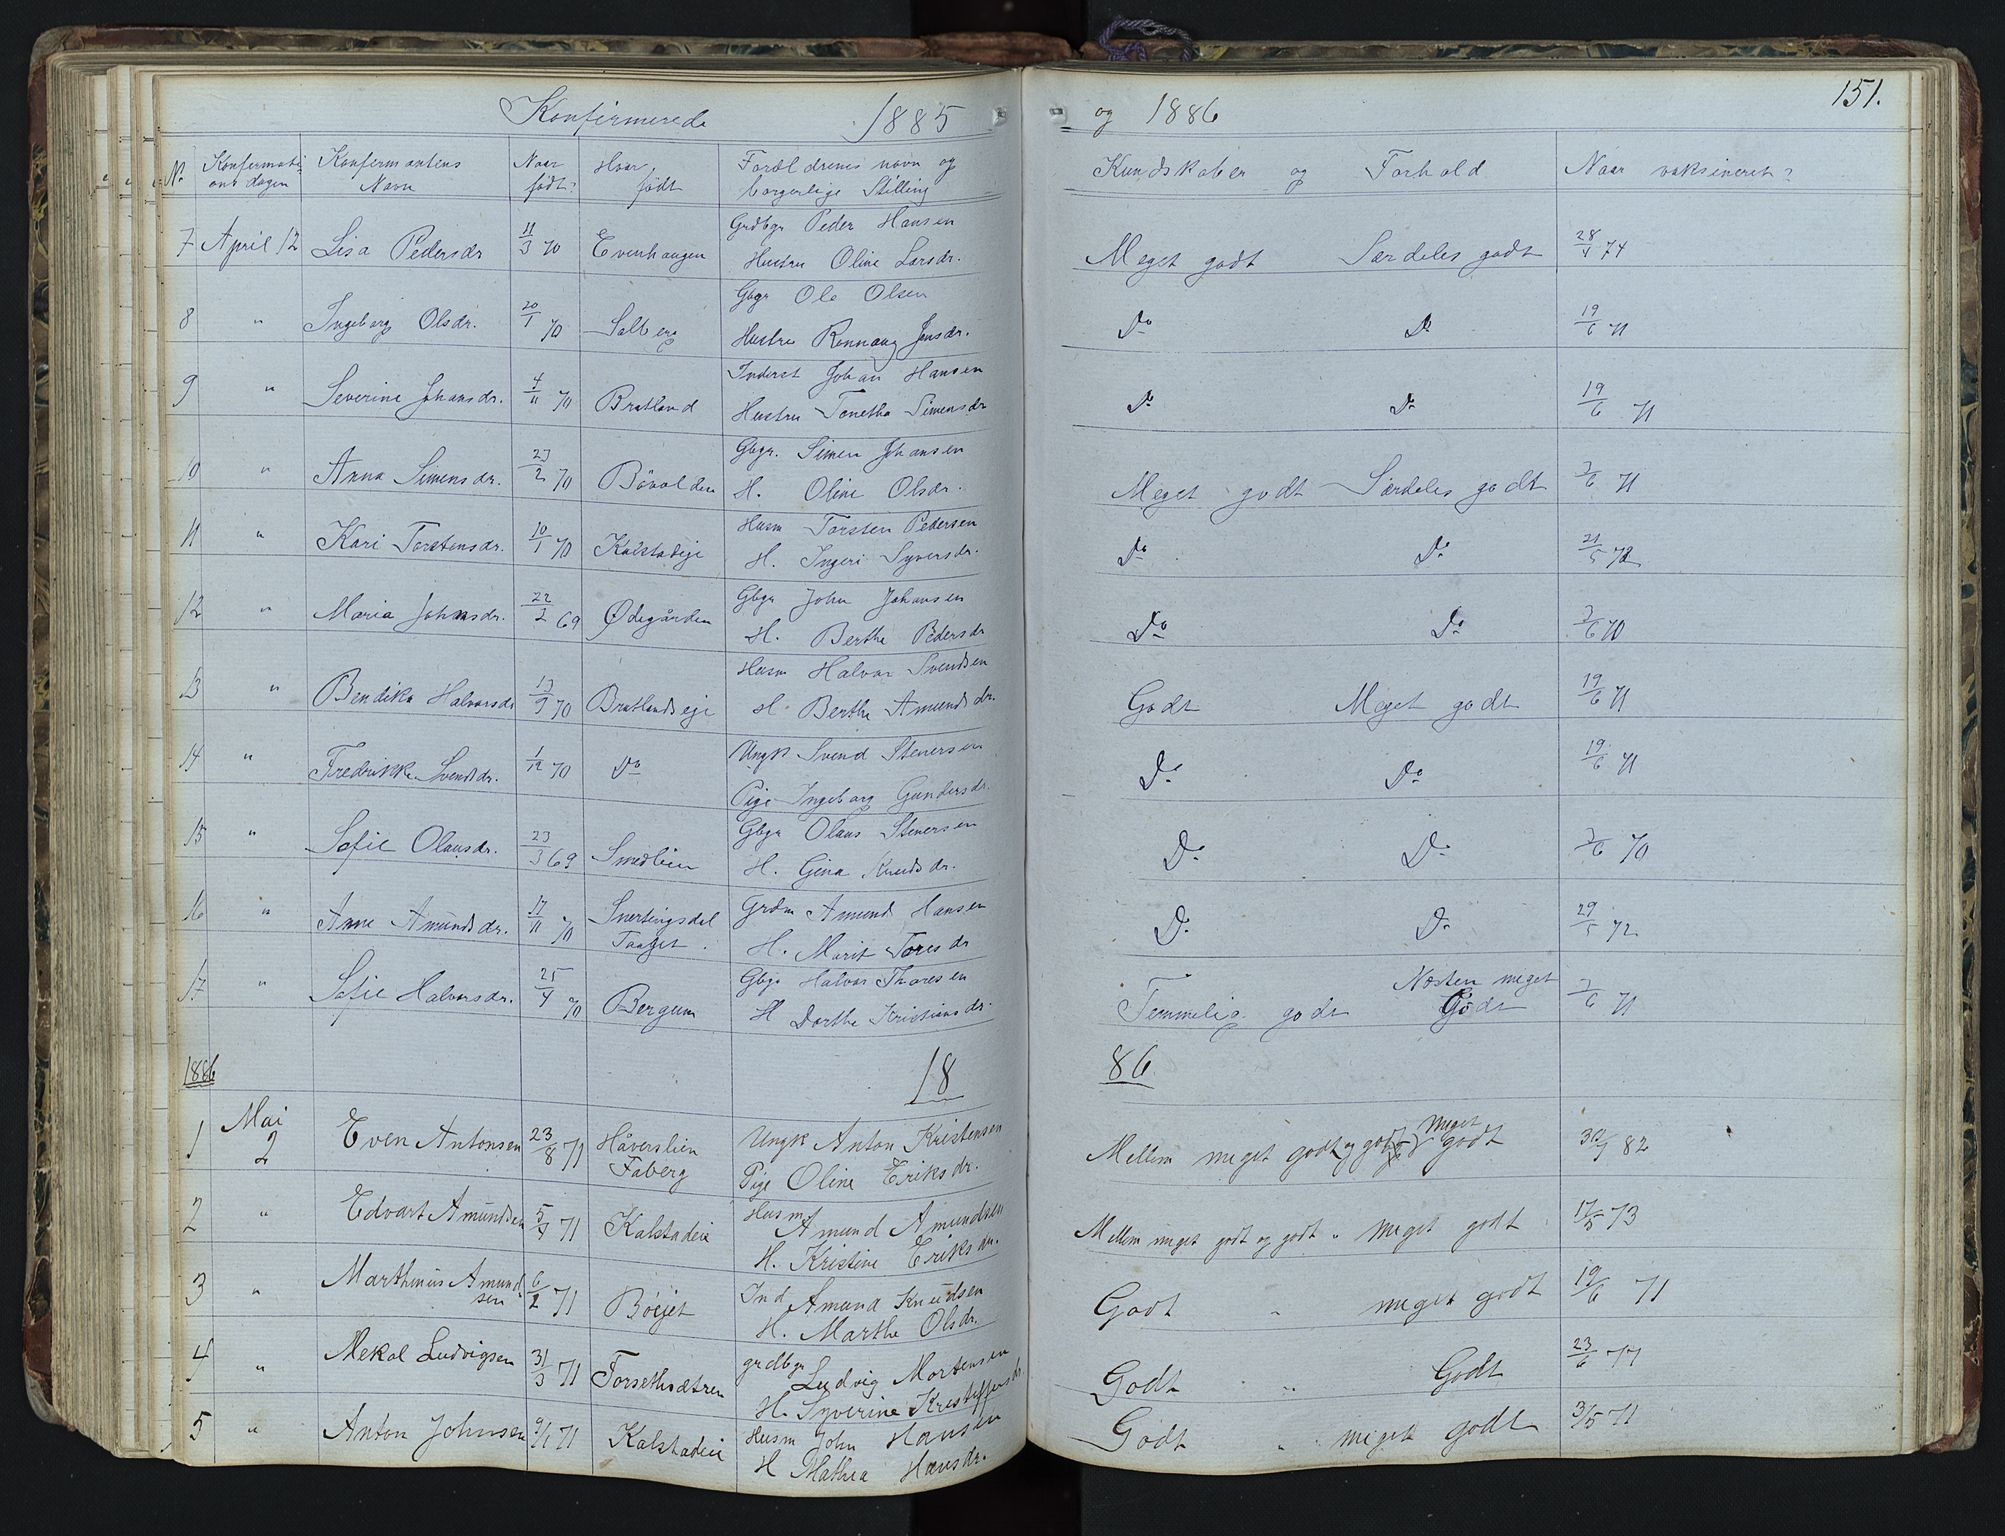 Konfirmerede 1885 og 1886 151.
No. Konfermati- Konfermantens Naar Hvor Forældrenes navn og Kundskaber og Forhold Naar vaksineret?
ons dagen Navn født? født borgerlige Stilling
7 April 12 Lisa Pedersdr 11/3 70 Evenhaugen Grdbgr Peder Hansen Meget godt Særdeles godt 28/4 74
Hustru Oline Larsdr.
8 " Ingeborg Olsdr. 20/1 70 Solberg Gbgr Ole Olsen Do Do 19/6 71
Hustru Rønnaug Jensdr.
9 " Severine Johansdr. 4/11 70 Bratland Inderst Johan Hansen Do Do 19/6 71
Hustru Tonetha Simensdr
10 " Anna Simensdr. 23/2 70 Bövolden Gbgr. Simen Johansen Meget godt Særdeles godt 7/6 71
H. Oline Olsdr.
11 " Kari Torstensdr. 10/1 70 Kalstadeje Husm Torsten Pedersen Do Do 21/5 72
H. Ingeri Syversdr.
12 " Maria Johnsdr. 22/2 69 Ødegården Gbgr John Johansen Do Do 7/6 70
H. Berthe Pedersdr
13 " Bendika Halvorsdr 13/9 70 Bratlandseje Husm Halvor Svendsen Godt Meget godt 19/6 71
H. Berthe Amundsdr.
14 " Fredrikke Svendsdr. 1/12 70 Do Ungk Svend Stenersen Do Do 19/6 71
Pige Ingeborg Gundersdr.
15 " Sofie Olausdr. 23/3 69 Smedlien Gbgr Olaus Stenersen Do Do 7/6 70
H. Gina Knudsdr.
16 " Anne Amundsdr. 17/11 70 Snertingsdal Grdm Amund Hansen Do Do 29/5 72
H. Marit Toresdr
17 " Sofie Halvorsdr. 25/4 70 Bergum Gbgr Halvor Thoresen Temmelig godt Næsten meget 7/6 71
H Dorthe Kristiansdr. Godt
1886 18 86
Mai
1 2 Even Antonsen 23/8 71 Håverslien Ungk Anton Kristensen Mellem meget godt og godt meget godt 82
Faberg Pige Oline Eriksdr.
2 " Edvart Amundsen 5/4 71 Kalstadeie Husm Amund Amundsen Mellem meget godt og godt " meget godt 17/5 73
H. Kristine Eriksdr.
3 " Marthinius Amund- 6/2 71 Böejet Ind Amund Knudsen Godt " meget godt 19/6 71
sen H. Marthe Olsdr.
4 " Mekal Ludvigsen 31/3 71 Forsethsætren grdbgr Ludvig Mortensen Godt " Godt 23/6 77
H. Syverine Kristoffersdr.
5 " Anton Johnsen 9/1 71 Kalstadeie Husm John Hansen Godt " meget godt 3/5 71
H Mathea Hansdr.